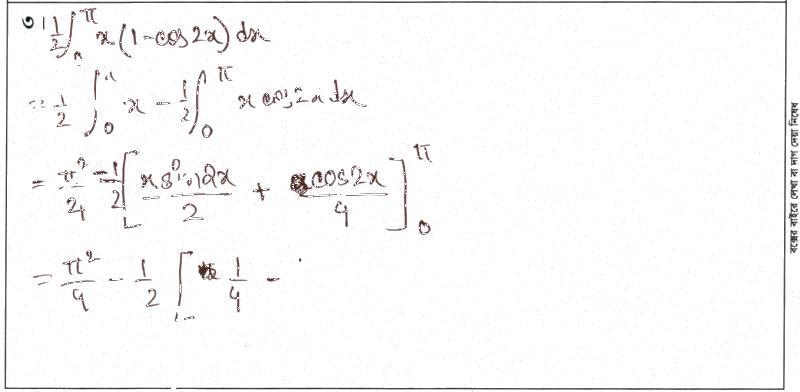 ৩। 1/2 ∫₀^π x(1-cos2x) dx
= 1/2 ∫₀^π x - 1/2 ∫₀^π x cos2x dx
= π²/4 - 1/2 [x sin2x/2 + cos2x/4]₀^π
= π²/4 - 1/2 [1/4 -
বক্সের বাইরে লেখা বা দাগ দেয়া নিষেধ